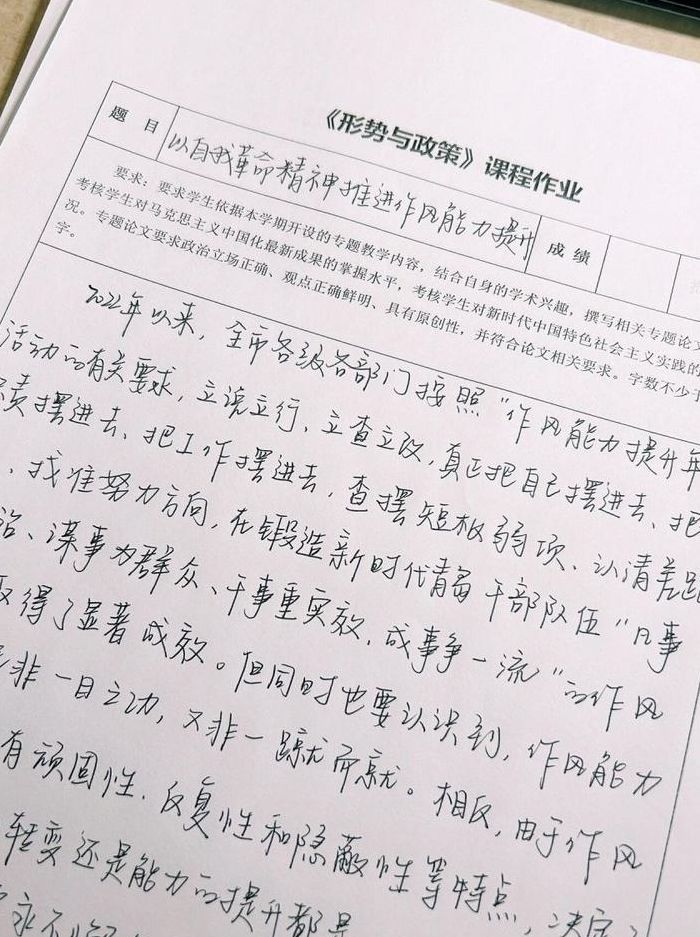 《形势与政策》课程作业
题 目
以自我革命精神推进作风能力提升
成 绩
要求：要求学生依据本学期开设的专题教学内容，结合自身的学术兴趣，撰写相关专题论文
考核学生对马克思主义中国化最新成果的掌握水平，考核学生对新时代中国特色社会主义实践的
况。专题论文要求政治立场正确、观点正确鲜明、具有原创性，并符合论文相关要求。字数不少于
字。
2022年以来，全市各级各部门按照“作风能力提升年
活动的有关要求，立说立行、立查立改，真正把自己摆进去、把
责摆进去、把工作摆进去，查摆短板弱项、认清差距
、找准努力方向，在锻造新时代青年干部队伍“凡事
谋事为群众、干事重实效，成事争一流”的作风
取得了显著成效。但同时也要认识到，作风能力
非一日之功，又非一蹴而就。相反，由于作风
有顽固性、反复性和隐蔽性等特点，决定
转变还是能力的提升都是
永不